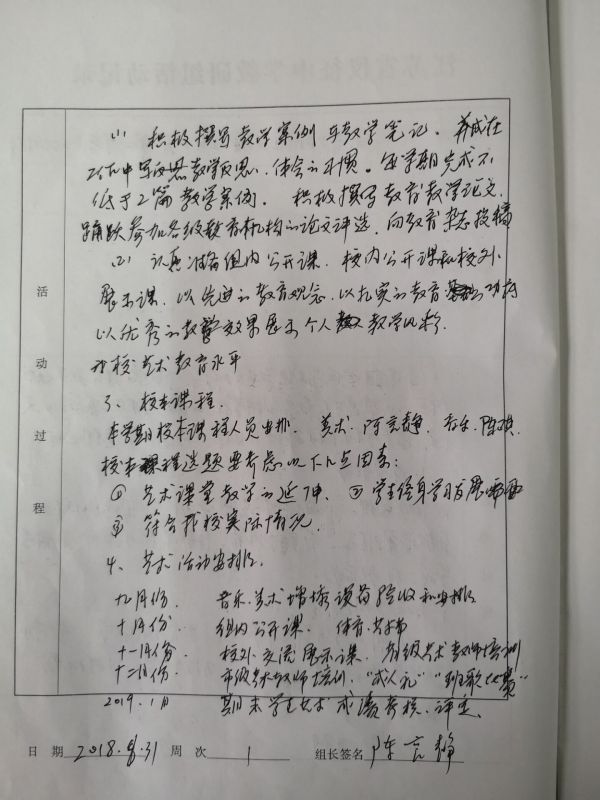 (1) 积极撰写教学案例与教学笔记。养成在
工作中写反思教学反思、体会的习惯。每学期完成不
低于2篇教学案例。积极撰写教育教学论文，
踊跃参加各级教育机构的论文评选，向教育杂志投稿
(2) 认真准备组内公开课、校内公开课和校外
展示课，以先进的教育观念，以扎实的教育功底
以优秀的教学效果展示个人教学风采，
校艺术教育水平
3、校本课程。
本学期校本课程人员安排。美术：陈言静，音乐：陈琪。
校本课程选题要考虑以下几点因素：
① 艺术课堂教学的延伸、② 学生终身学习发展需要
③ 符合我校实际情况。
4、艺术活动安排。
九月份、音乐、美术增添设备验收和安排
十月份 组内公开课、体育、艺术节
十一月份、校外交流展示课、省级艺术教师培训
十二月份、市级艺术教师培训，“成人礼”“班歌比赛”
2019.1月 期末学生艺术成绩考核、评定。
活
动
过
程
日 期 2018.8.31 周 次 1 组长签名 陈言静